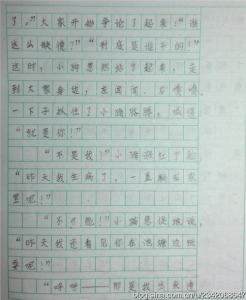 了。”大家开始争论了起来！“谁
这么缺德？”“到底是谁干的！”
这时，小狗忽然站了起来，走
到大家身边，左闻闻，右嗅嗅，
一下子抓住了小猪胳膊，喊：
“就是你！”
“不是我！”小猪涨红了脸
“昨天我生病了，一直躺在家
里呢！”
“不可能！”小猫急促地说，
“昨天我还看见你在池塘边玩
耍呢！”
“哼哼——
那是我出来透
blog.sina.com.cn/u/2342068647